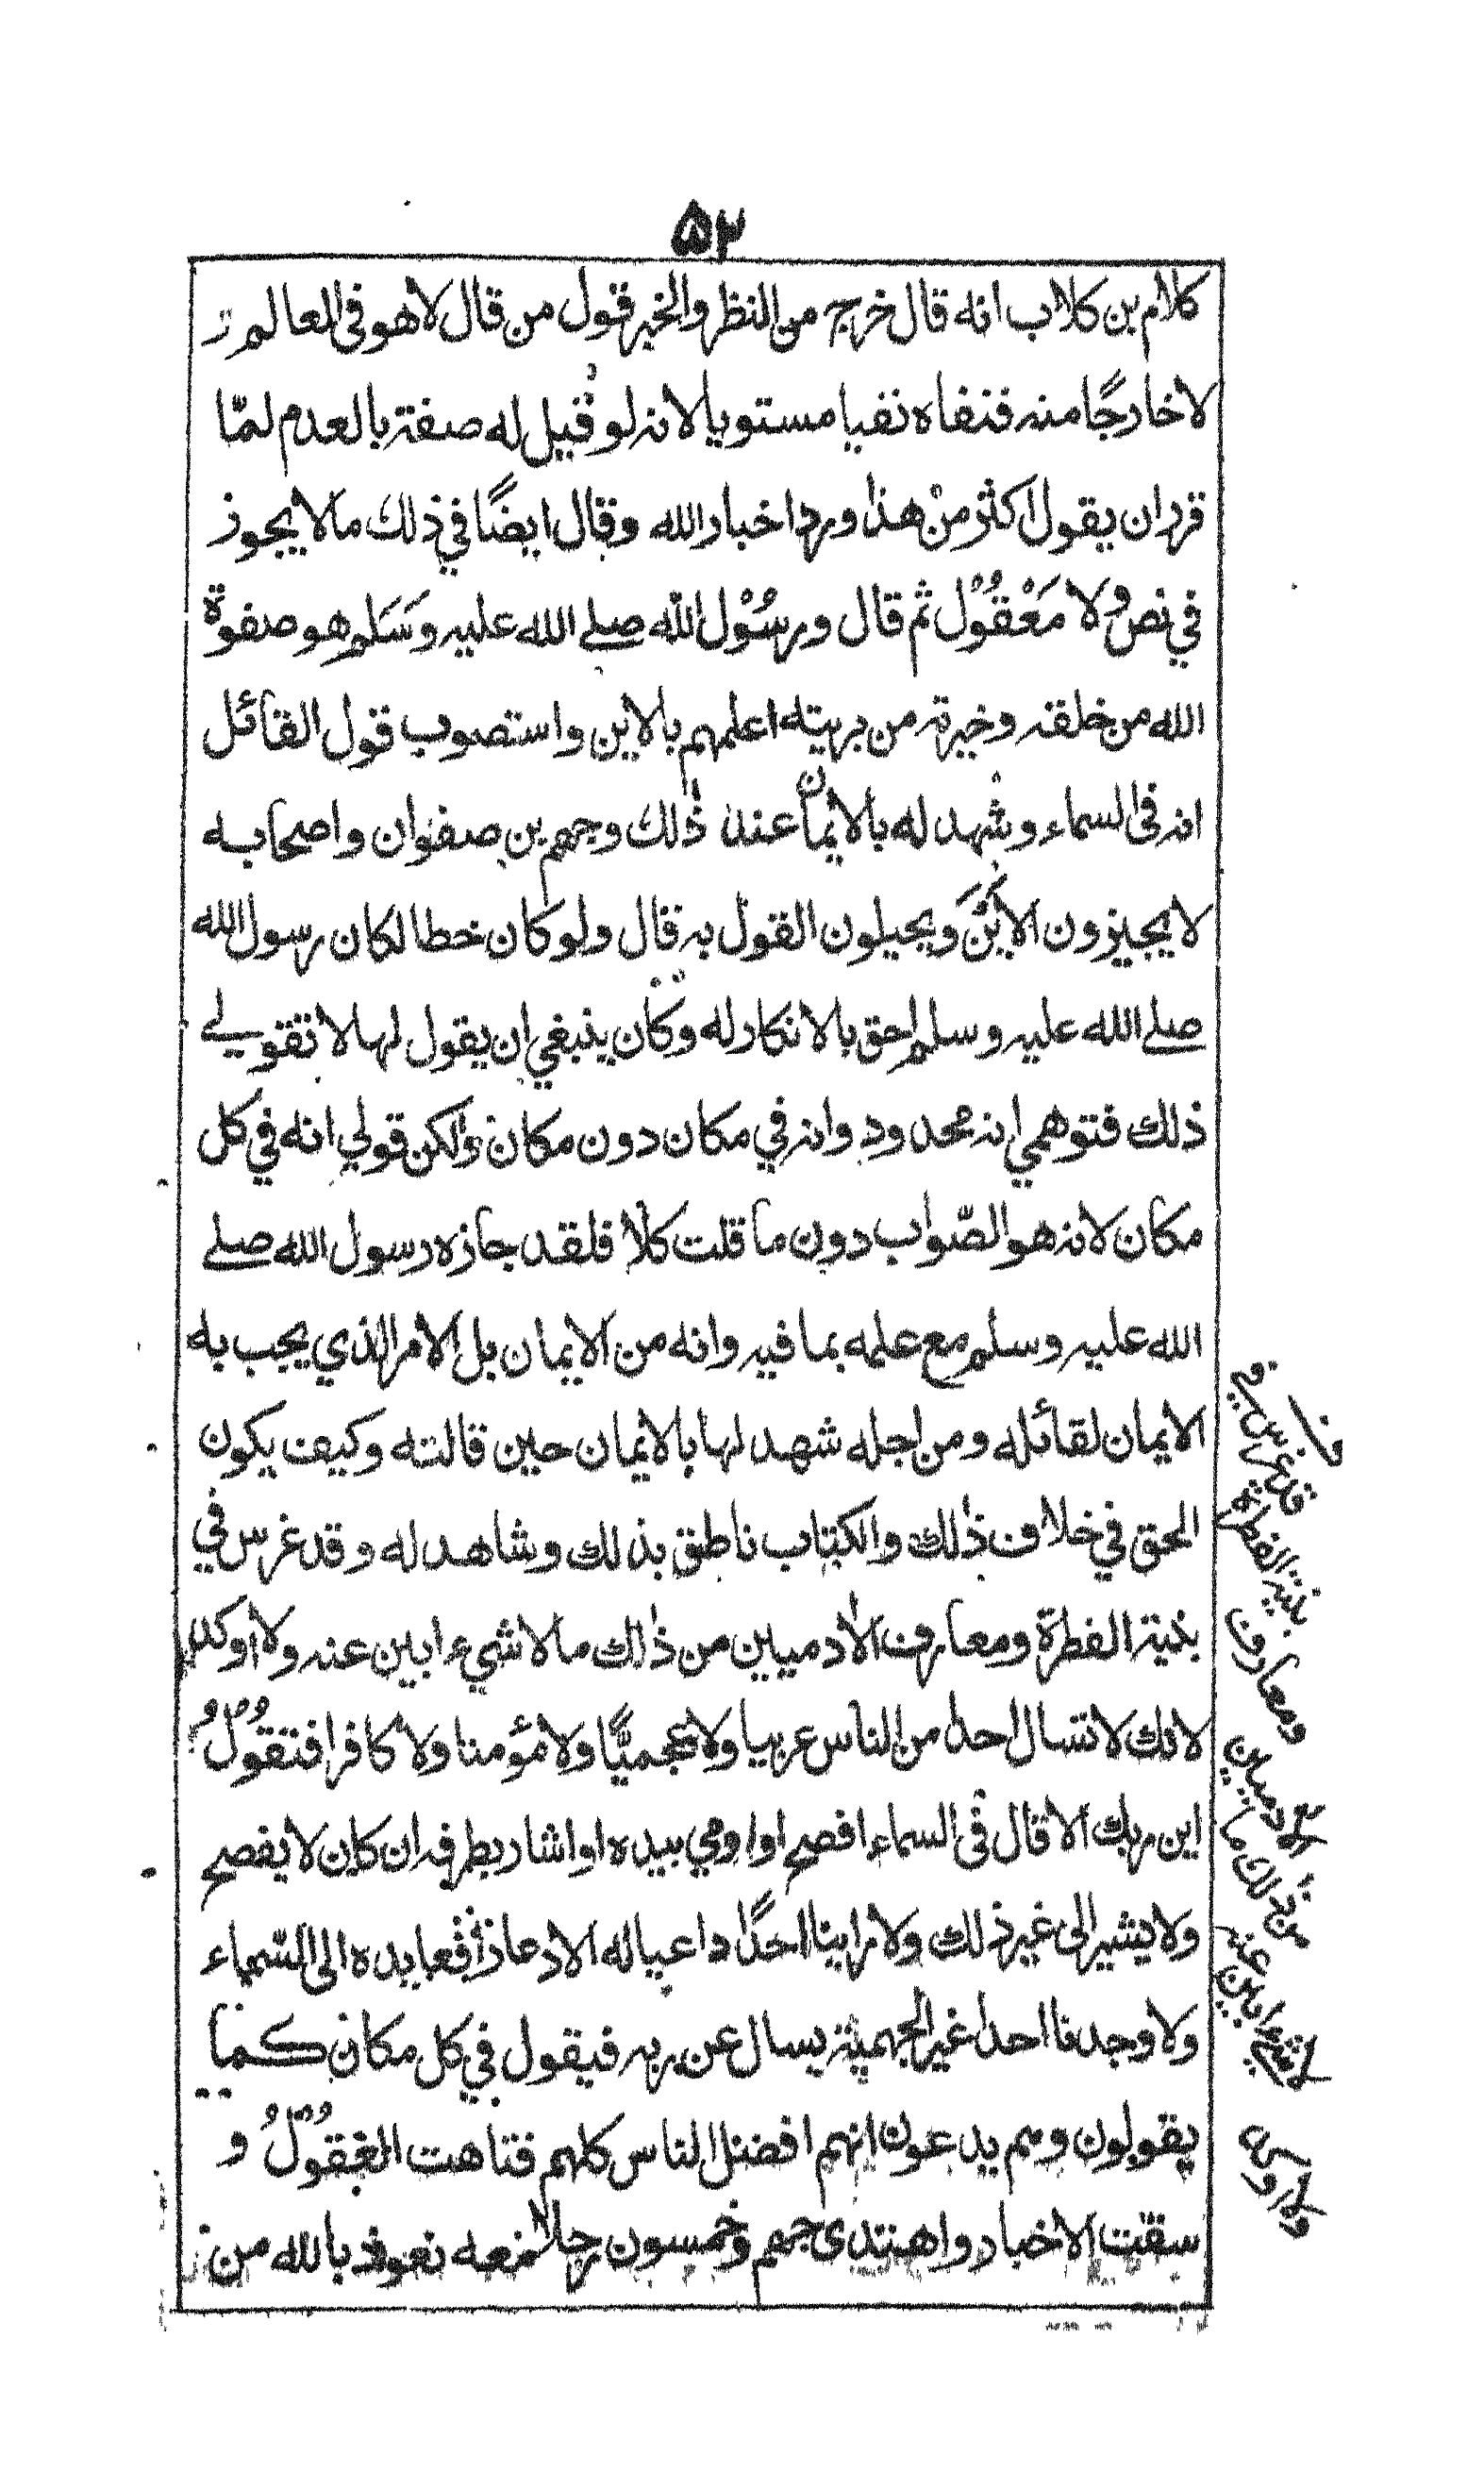 ۵۳
كلام بن كلاب انه قال خرج من النظر والخبر قول من قال لا هو فى العالم و
لا خارجًا منه فنفاه نفيا مستويا لانه لو قيل له صفه بالعدم لمّا
قدر ان يقول اكثر من هذا ورد اخبار الله وقال ايضًا في ذلك ما لا يجوز
في نص ولا مَعْقُوْل ثم قال ورسُوْل الله صلے الله عليه وَسَلم هو صفوة
الله من خلقه وخيرته من بريته اعلمهم بالاين واستصوب قول القائل
انه فى السماء وشهد له بالايمان عند ذٰلك وجهم بن صفوان واصحابه
لا يجيزون الاَيْنَ ويحيلون القول به قال ولو كان خطا لكان رسول الله
صلے الله عليه وسلم احق بالانكار له وكان ينبغي ان يقول لها لا تقولے
ذلك فتوهمي انه محدود وانه في مكان دون مكان ولكن قولي انه في كل
مكان لانه هو الصّواب دون ما قلت كلا فلقد جازه رسول الله صلے
الله عليه وسلم مع علمه بما فيه وانه من الايمان بل الامر الذي يجب به
الايمان لقائله ومن اجله شهد لها بالايمان حين قالته وكيف يكون
الحق في خلاف ذٰلك والكتاب ناطق بذلك وشاهد له وقد غرس في
بنية الفطرة ومعارف الادميين من ذٰلك ما لا شيء ابين عنه ولا اوكد
لانك لا تسال احدا من الناس عربيا ولا عجميًّا ولا مؤمنا ولا كافرا فتقُولُ
اين ربك الا قال فى السماء افصح او اومي بيده او اشار بطرفه ان كان لا يفصح
ولا يشير الى غير ذلك ولا راينا احدًا داعيا له الا رافعا يده الى السّماء
ولا وجدنا احدا غير الجهمية يسال عن ربه فيقول في كل مكان كما
يقولون وهم يدعون انهم افضل الناس كلهم فتاهت العقُولُ و
سقت الاخبار واهتدى جهم وخمسون رجلا معه نعوذ بالله من
قد غرس في
بنية الفطرة
ومعارف
الادميين
من ذلك ما
لا شيء ابين عنه
ولا اوكد